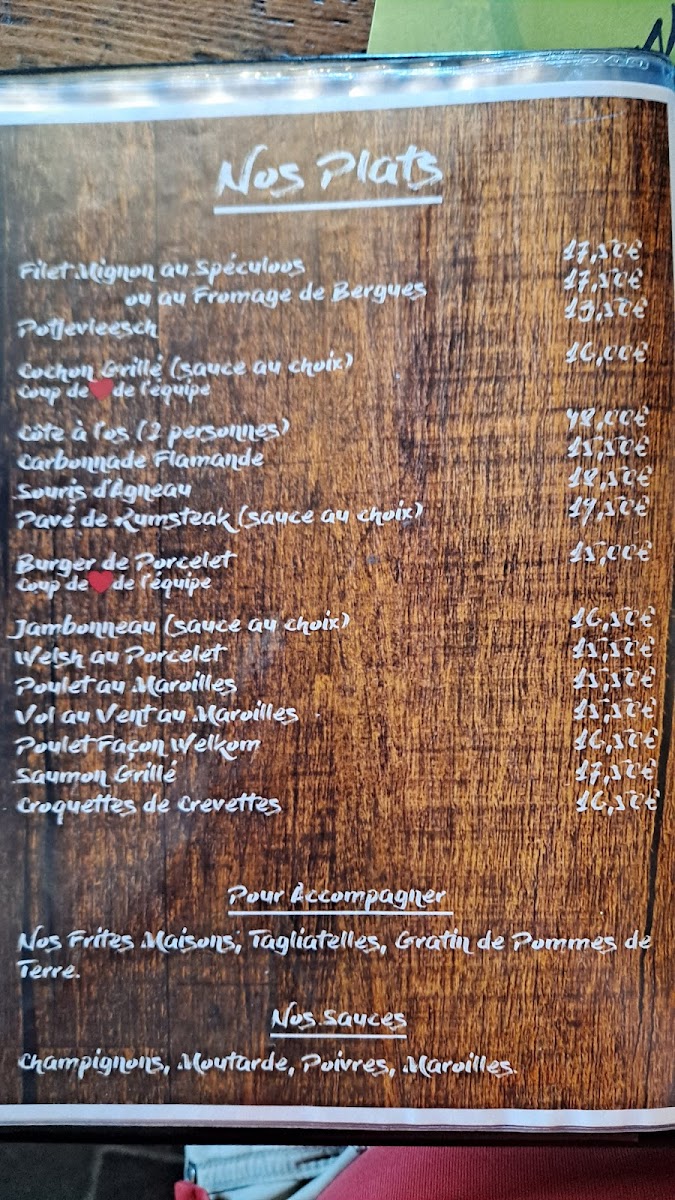 Nos Plats
Filet Mignon au Spéculoos 17,50€
ou au Fromage de Bergues 17,50€
Potjevleesch
Cochon Grillé (sauce au choix) 16,00€
Coup de ❤ de l'équipe
Côte à l'os (2 personnes) 48,00€
Carbonnade Flamande 15,50€
Souris d'Agneau 18,50€
Pavé de Rumsteak (sauce au choix) 19,50€
Burger de Porcelet 15,00€
Coup de ❤ de l'équipe
Jambonneau (sauce au choix) 16,50€
Welsh au Porcelet 15,50€
Poulet au Maroilles 15,50€
Vol au Vent au Maroilles 15,50€
Poulet Façon Welkom 16,50€
Saumon Grillé 17,50€
Croquettes de Crevettes 16,50€
Pour Accompagner
Nos Frites Maisons, Tagliatelles, Gratin de Pommes de
Terre.
Nos Sauces
Champignons, Moutarde, Poivres, Maroilles.